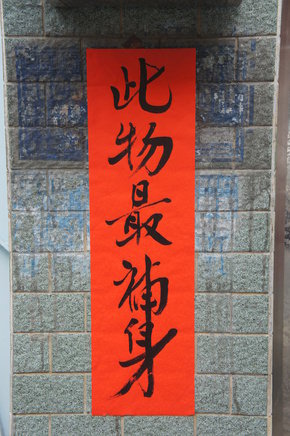 此物最補身